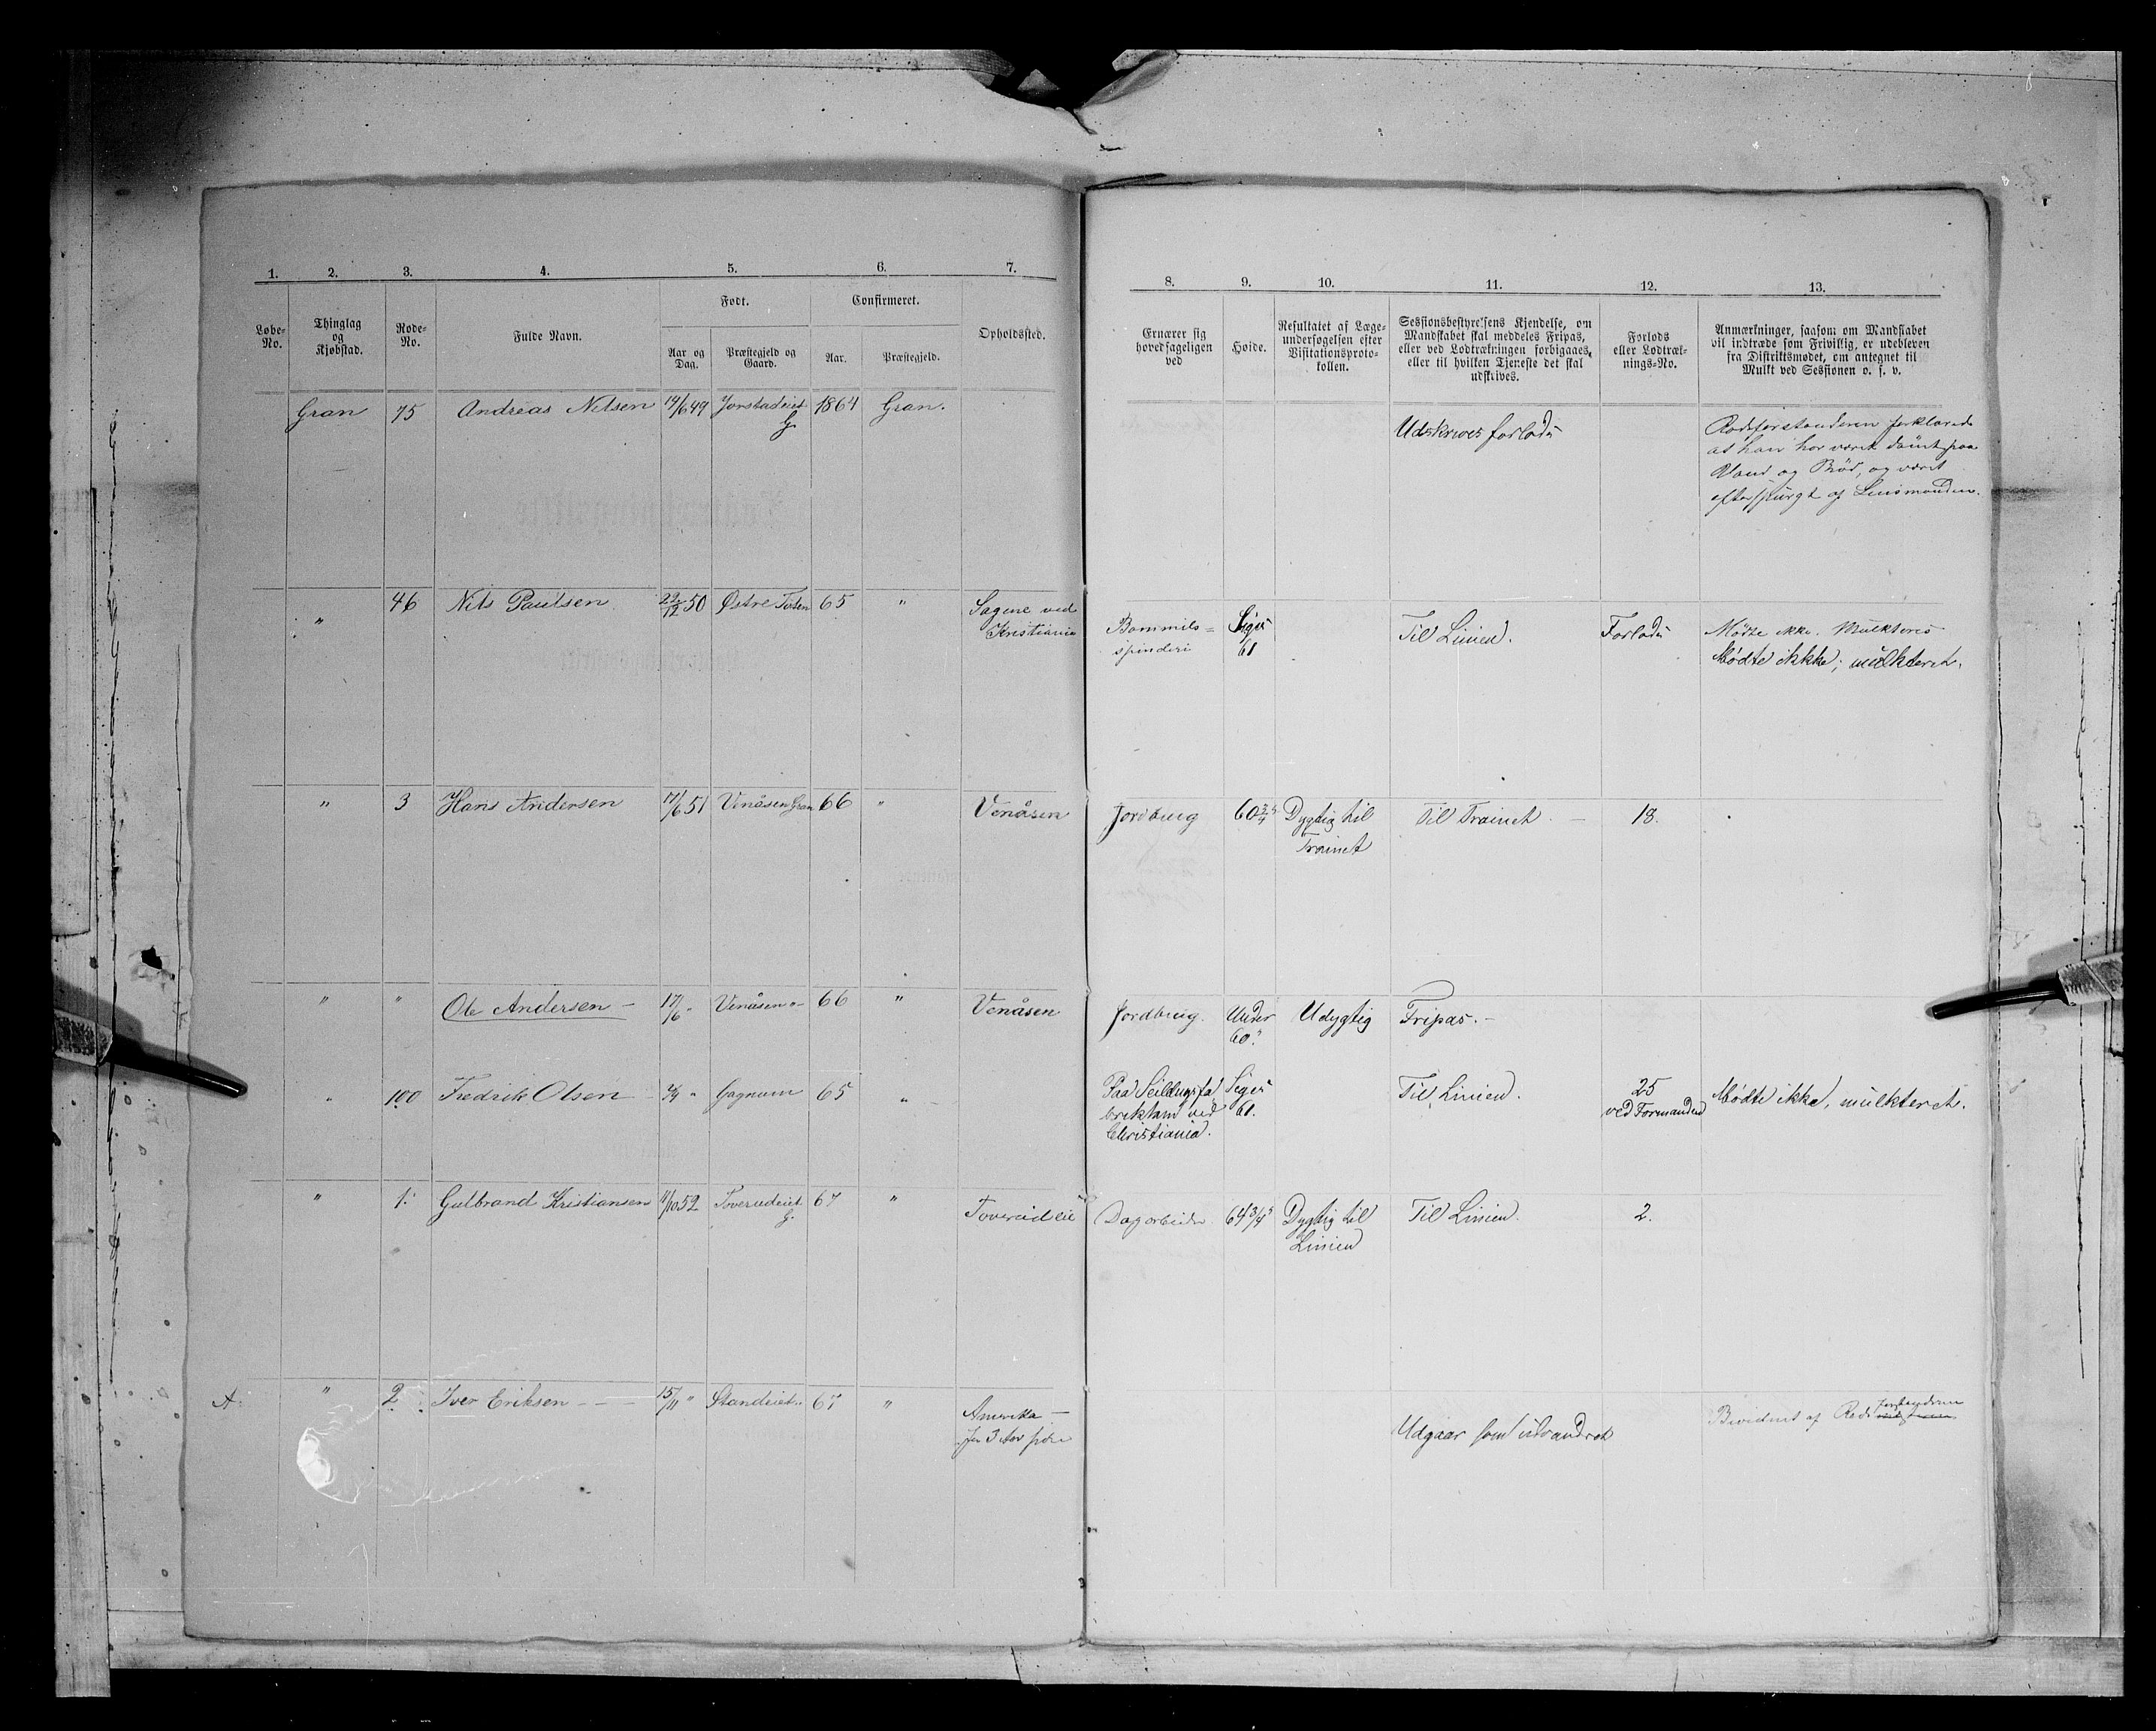 1. 2. 3. 4. 5. 6. 7.
Løbe-No. Thinglag og Kjøbstad. Rode-No. Fulde Navn. Født. Confirmeret. Opholdssted.
Aar og Dag. Præstegjeld og Gaard. Aar. Præstegjeld.
8. 9. 10. 11. 12. 13.
Ernærer sig hovedsageligen ved
Høide.
Resultatet af Læge-
undersøgelsen efter
Visitationsproto-
kollen.
Sessionsbestyrelsens Kjendelse, om
Mandskabet skal meddeles Fripas,
eller ved Lodtrækningen forbigaaes,
eller til hvilken Tjeneste det skal
udskrives.
Forlods
eller Lodtræk-
nings-No.
Anmærkninger, saasom om Mandskabet
vil indtræde som Frivillig, er udebleven
fra Distriktsmødet, om antegnet til
Mulkt ved Sessionen o. s. v.
Gran 75 Andreas Nilsen 14/6 49 Jorstadeiet G. 1864 Gran.
Udskrives forlods
Rodeforstanderen forklarede
at han har været dømt paa
Vand og Brød, og været
efterspurgt af Lensmanden.
" 46 Nils Paulsen 22/12 50 Østre Toten 65 " Sagene ved
Kristiania
Bommuls-
spinderi
Siges
61
Til Linien. Forlods
Mødte ikke. Mulkteres
Mødte ikkke; mulkteret.
" 3 Hans Andersen 17/6 51 Venåsen Gran 66 " Venåsen
Jordbrug 60 3/4 " Dygtig til
Trainet
Til Trainet. — 18.
" " Ole Andersen — 17/6 " Venåsen "- 66 " Venåsen
Jordbrug. Under
60."
Udygtig Fripas. —
" 100 Fredrik Olsen " Gagnum 65 "
Paa Seildugsfa
briktam ved
Christiania.
Siges
61.
Til Linien. 25
ved Formanden
Mødte ikke, mulkteret.
" 1. Gulbrand Kristiansen 11/10 52 Toverudeiet G. 67 " Toverudeie
Dagarbeide 64 3/4 " Dygtig til
Linien
Til Linien. 2.
A. " 2. Iver Eriksen - - - 15/11 " Standeiet " 67 " Amerika —
for 3 Aar siden
Udgaar som udvandret
Bevidnet af Rodeforstanderen